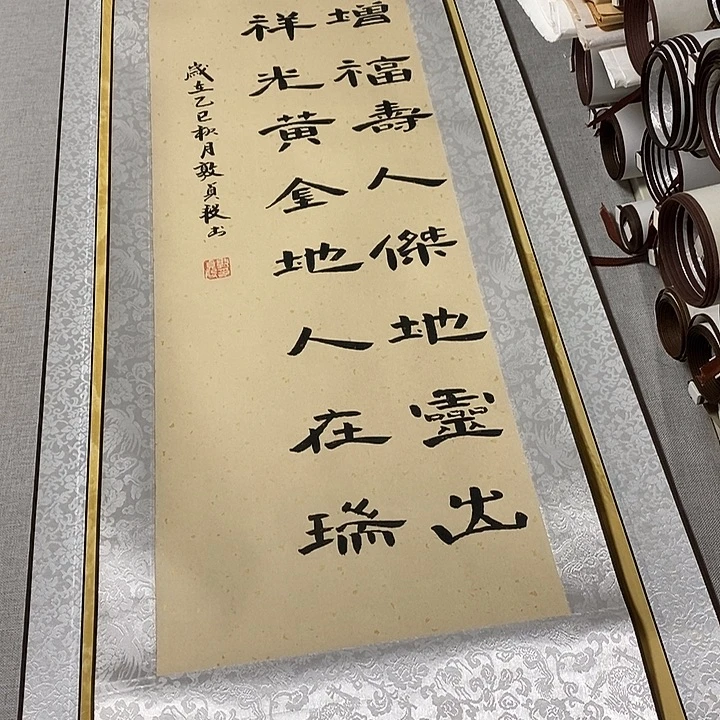 增福壽人傑地靈出
祥光黃金地人在瑞
歲在乙巳秋月